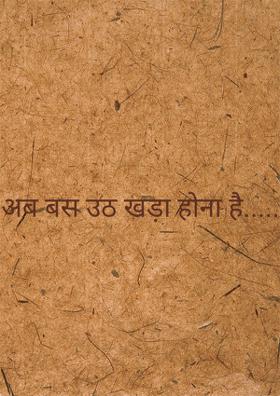 अब बस उठ खड़ा होना है.....